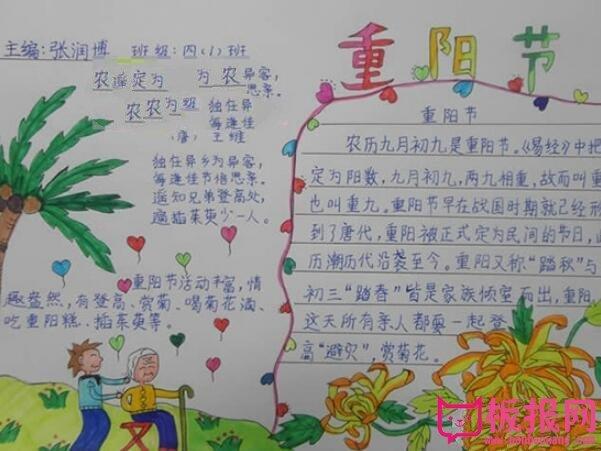 主编:张润博 班级:四(1)班
重阳节
农遥定为 为农异客,
思亲。
农农为班 独在异
每逢佳
(唐) 王维
独在异乡为异客,
每逢佳节倍思亲。
遥知兄弟登高处,
遍插茱萸少一人。
重阳节活动丰富,情
趣盎然,有登高、赏菊、喝菊花酒、
吃重阳糕、插茱萸等。
重阳节
农历九月初九是重阳节。《易经》中把
定为阳数,九月初九,两九相重,故而叫重
也叫重九。重阳节早在战国时期就已经形
到了唐代,重阳被正式定为民间的节日,
历朝历代沿袭至今。重阳又称“踏秋”与
初三“踏春”皆是家族倾室而出,重阳
这天所有亲人都要一起登
高“避灾”,赏菊花。
板报网